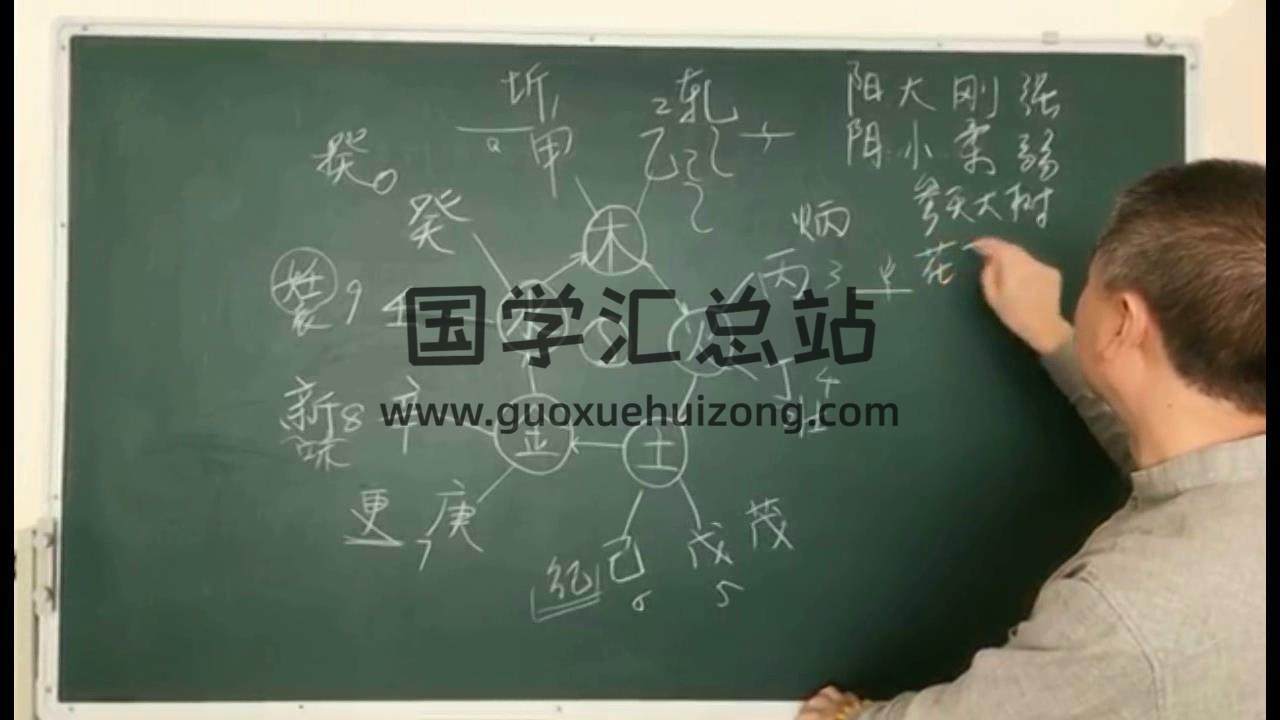 阳大刚强
阴小柔弱
参天大树
花
坼1
甲
2轧
乙
癸0
癸
木
炳
丙3
9壬
国学汇总站
www.guoxuehuizong.com
4
新8辛
金
土
更
7庚
纪
己
6
戊
5
茂